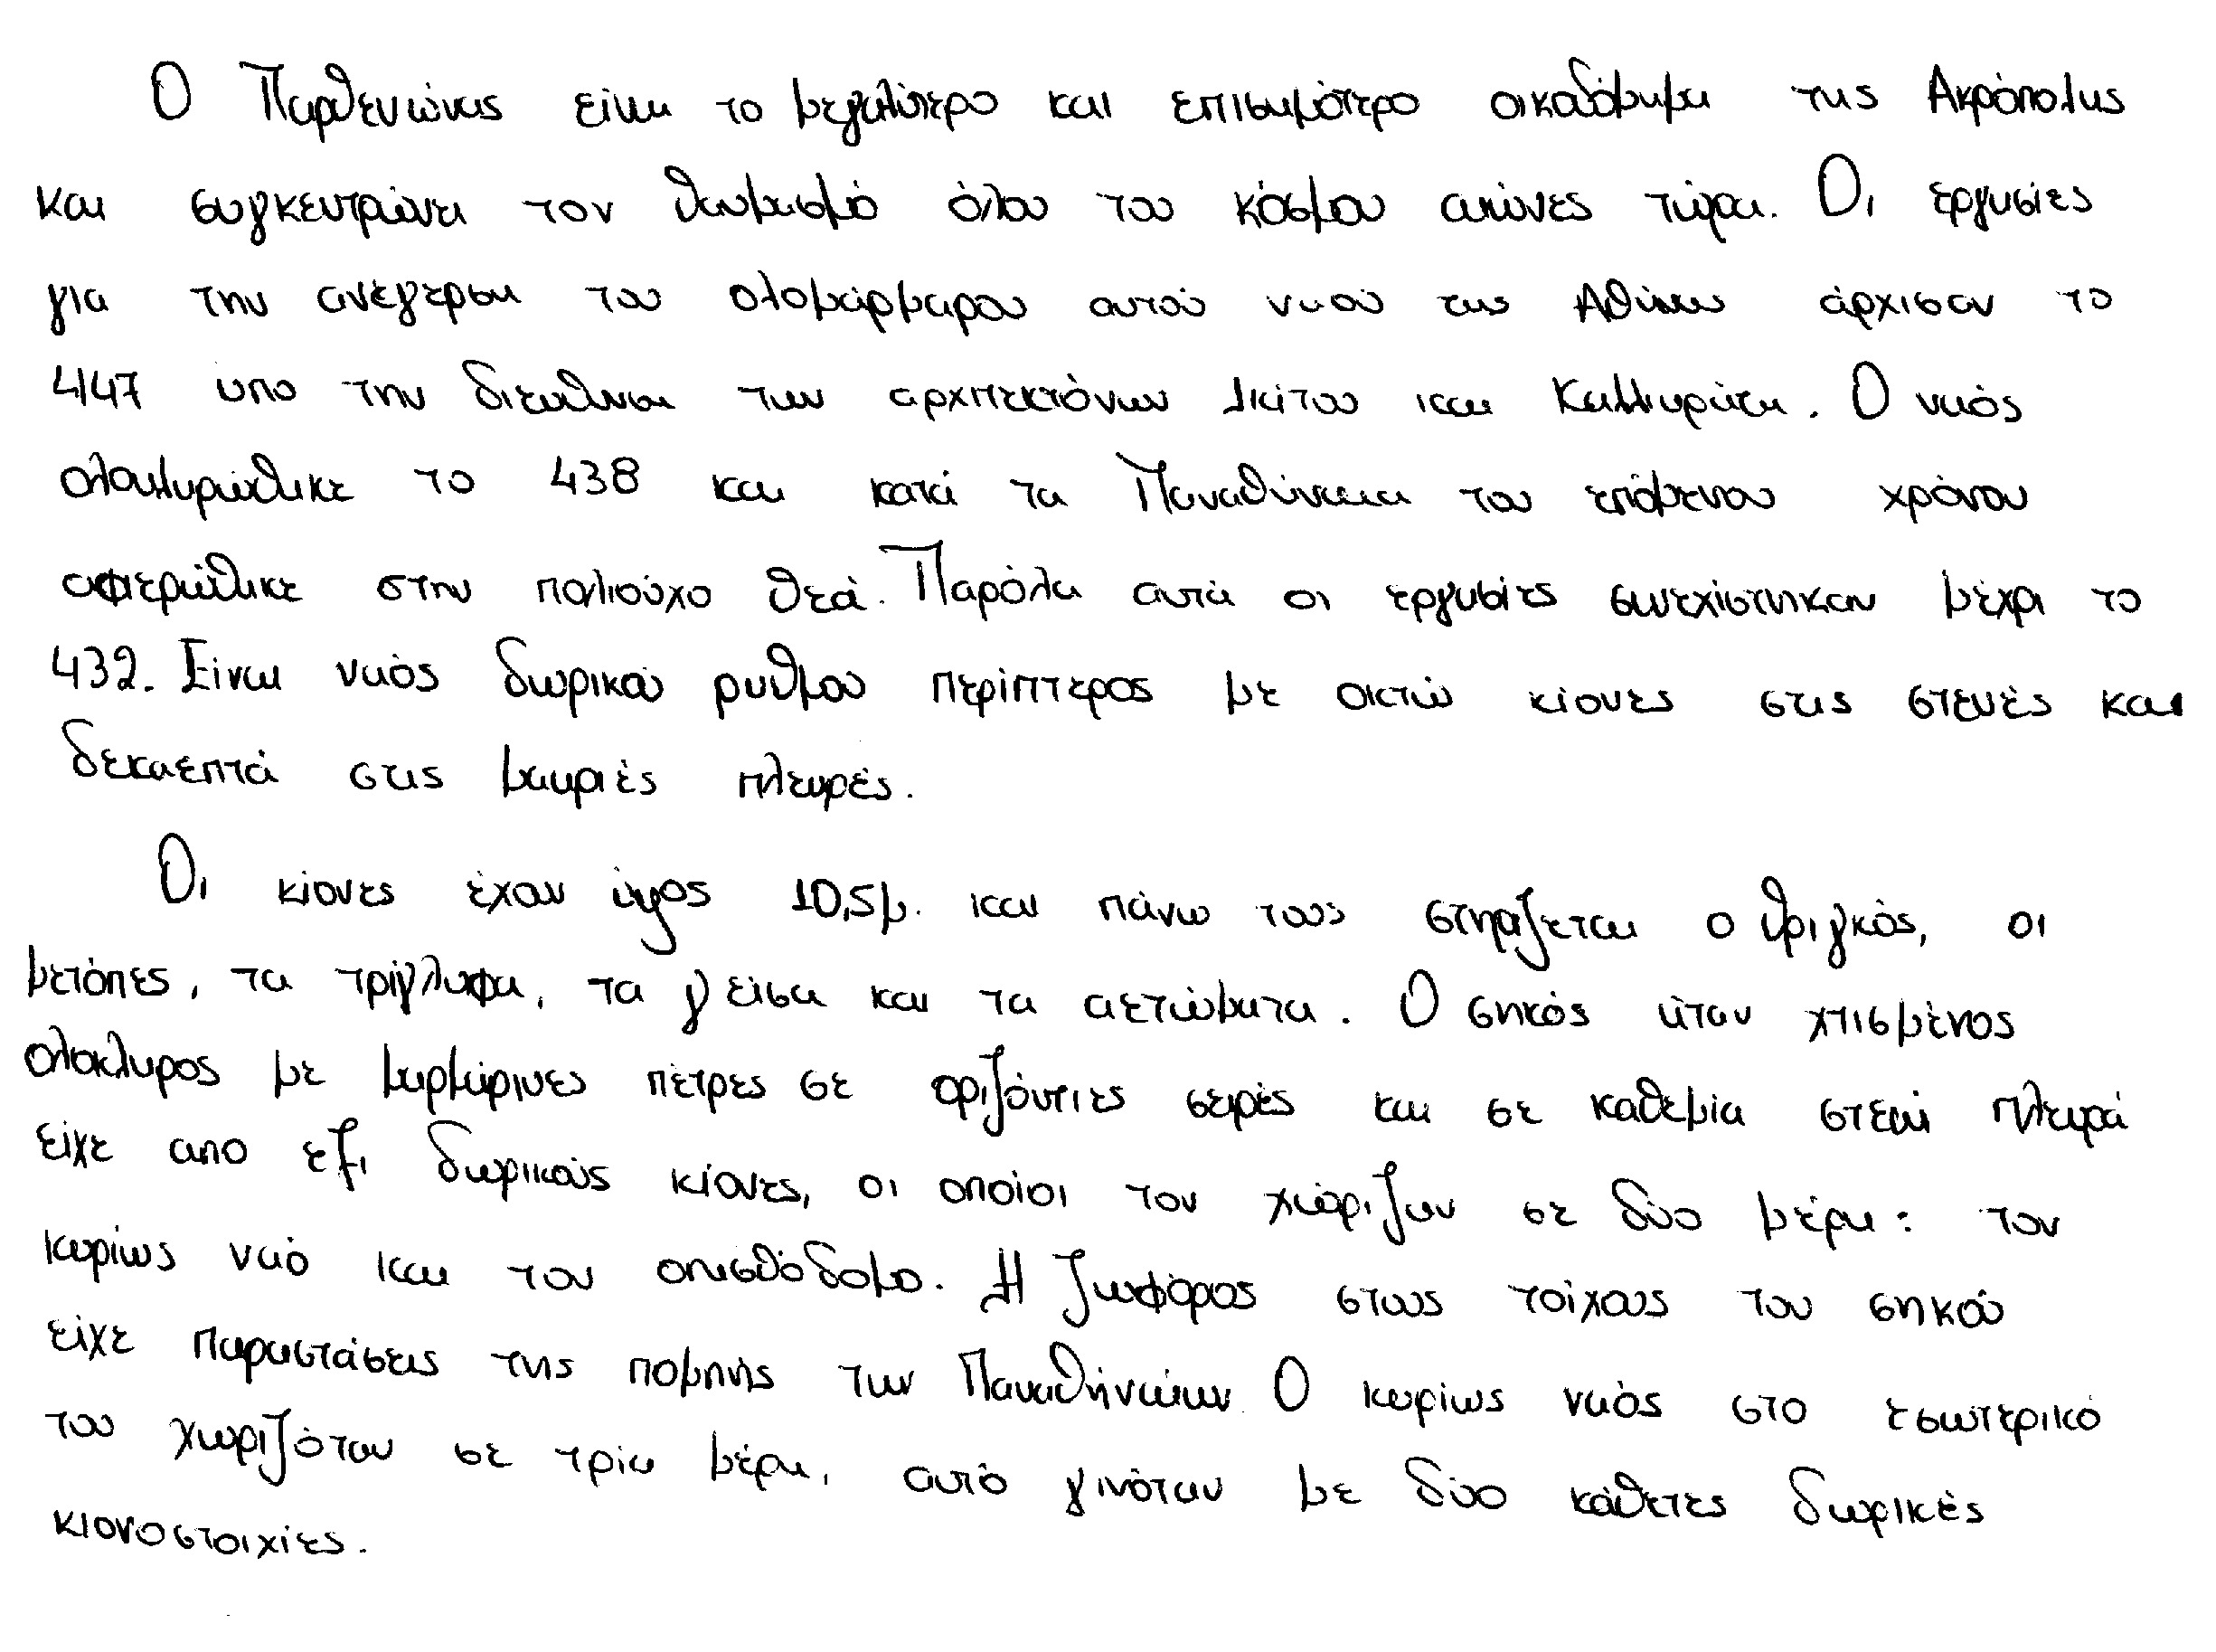 Ο Παρθενώνας είναι το μεγαλύτερο και επισημότερο οικοδόμημα της Ακρόπολης
και συγκεντρώνει τον θαυμασμό όλου του κόσμου αιώνες τώρα. Οι εργασίες
για την ανέγερση του ολομάρμαρου αυτού ναού της Αθήνας άρχισαν το
447 υπο την διευθυνση των αρχιτεκτόνων Ικτίνου και Καλλικράτη. Ο ναός
ολοκληρώθηκε το 438 και κατά τα Παναθήναια του επόμενου χρόνου
αφιερώθηκε στην πολιούχο θεά. Παρόλα αυτά οι εργασίες συνεχίστηκαν μέχρι το
432. Είναι ναός δωρικού ρυθμού περίπτερος με οκτώ κίονες στις στενές και
δεκαεπτά στις μακριές πλευρές.
Οι κίονες έχουν ύψος 10,5μ. και πάνω τους στηρίζεται ο θριγκός, οι
μετόπες, τα τρίγλυφα, τα γείσα και τα αετώματα. Ο σηκός ήταν χτισμένος
ολόκληρος με μαρμάρινες πέτρες σε οριζόντιες σειρές και σε καθεμία στενή πλευρά
είχε απο εξι δωρικούς κίονες, οι οποίοι τον χώριζαν σε δύο μέρη: τον
κυρίως ναό και τον οπισθόδομο. Η ζωφόρος στους τοίχους του σηκού
είχε παραστάσεις της πομπής των Παναθήναίων Ο κυρίως ναός στο εσωτερικό
του χωριζόταν σε τρία μέρη, αυτό γινόταν με δύο κάθετες δωρικές
κιονοστοιχίες.